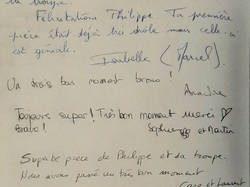 la troupe.
Félicitations Philippe. Ta première
pièce était déjà très drôle mais celle-ci
est géniale.
Isabelle (Marcel)
Un très bon moment bravo !
Toujours super ! Très bon moment merci
Bravo ! Sophie et Martin
Superbe pièce de Philippe et sa troupe.
Nous avons passé un très bon moment
et Laurent